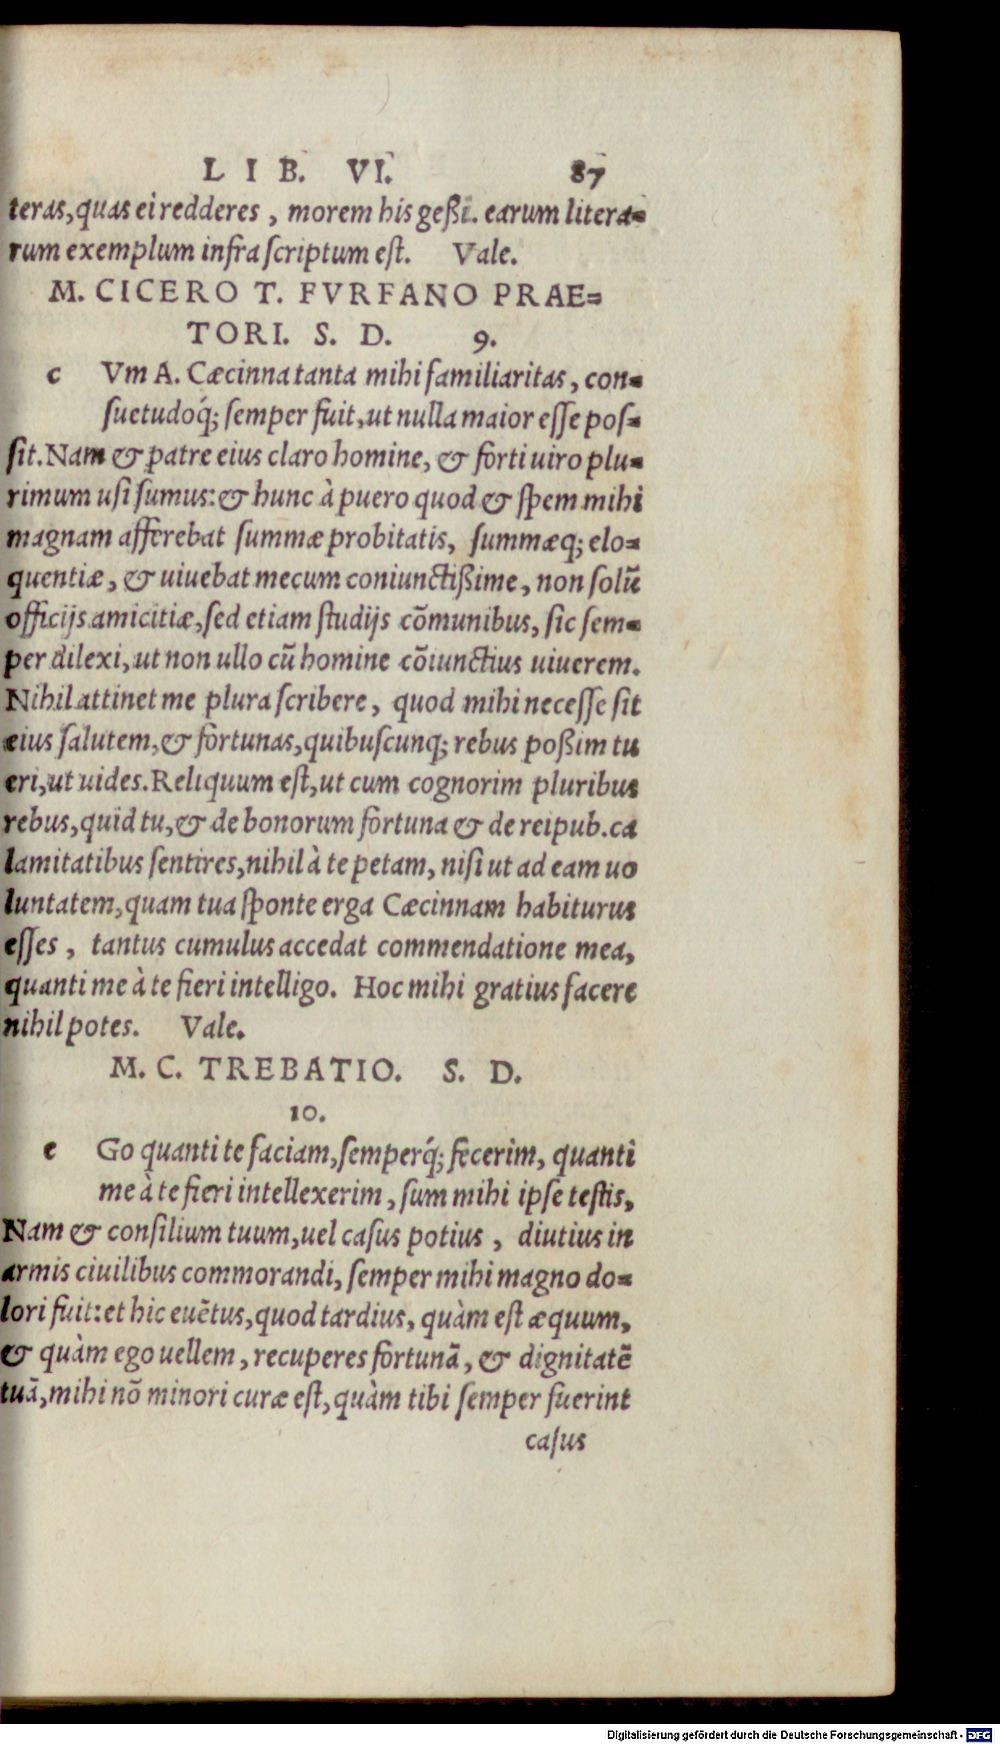 LIB. VI. 87
teras, quas ei redderes, morem his geßi. earum litera=
rum exemplum infra scriptum est. Vale.
M. CICERO T. FVRFANO PRAE=
TORI. S. D. 9.
c Vm A. Cæcinna tanta mihi familiaritas, con=
suetudoq́; semper fuit, ut nulla maior esse pos=
sit. Nam & patre eius claro homine, & forti uiro plu=
rimum usi sumus: & hunc à puero quod & spem mihi
magnam afferebat summæ probitatis, summæq; elo=
quentiæ, & uiuebat mecum coniunctißime, non solũ
officijs amicitiæ, sed etiam studijs cõmunibus, sic sem=
per dilexi, ut non ullo cũ homine cõiunctius uiuerem.
Nihil attinet me plura scribere, quod mihi necesse sit
eius salutem, & fortunas, quibuscunq; rebus poßim tu
eri, ut uides. Reliquum est, ut cum cognorim pluribus
rebus, quid tu, & de bonorum fortuna & de reipub. ca
lamitatibus sentires, nihil à te petam, nisi ut ad eam uo
luntatem, quam tua sponte erga Cæcinnam habiturus
esses, tantus cumulus accedat commendatione mea,
quanti me à te fieri intelligo. Hoc mihi gratius facere
nihil potes. Vale.
M. C. TREBATIO. S. D.
10.
e Go quanti te faciam, semperq́; fecerim, quanti
me à te fieri intellexerim, sum mihi ipse testis,
Nam & consilium tuum, uel casus potius, diutius in
armis ciuilibus commorandi, semper mihi magno do=
lori fuit: et hic euẽtus, quod tardius, quàm est æquum,
& quàm ego uellem, recuperes fortunã, & dignitatẽ
tuã, mihi nõ minori curæ est, quàm tibi semper fuerint
casus
Digitalisierung gefördert durch die Deutsche Forschungsgemeinschaft - DFG